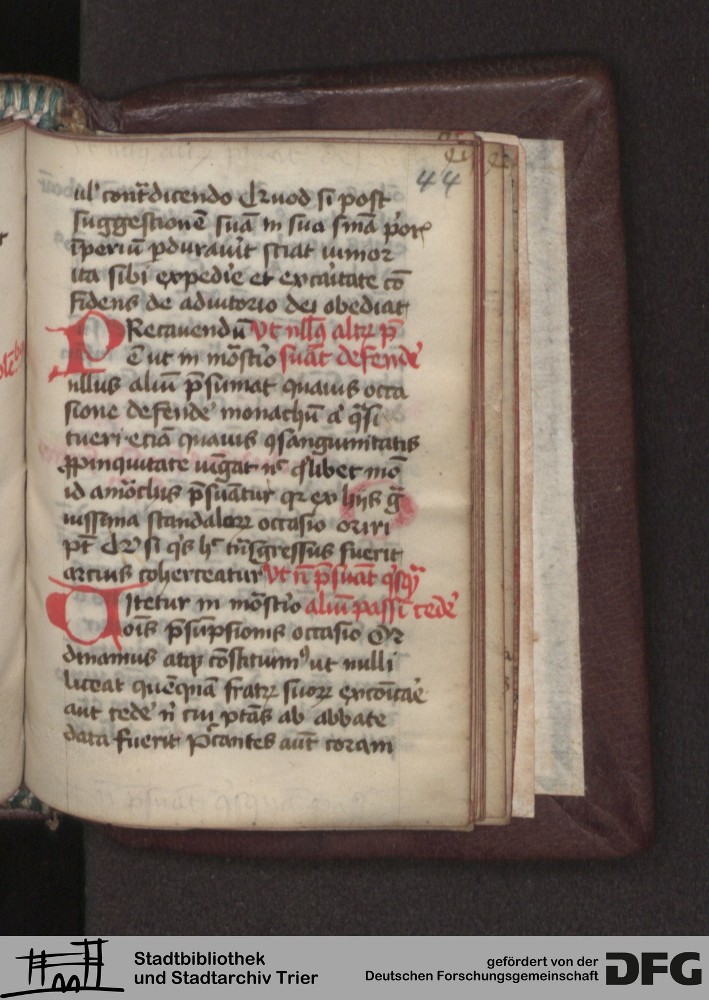 44
ul' cont͛dicendo Quod si post
suggestionē suā in sua s̄nia p̄or
īperiū pduraūit sciat iunior
ita sibi expedi͛e et ex caritate cō
fidens de adiutorio dei obediat
PRecauendū Vt nllꝰ altꝝ p̄
ē ut in mōst͛io suāt defende͛
ullus aliū p̄sumat quauis occa
sione defende͛ monachū a͛ q̄si
tueri eciā quauis ꝯsanguinitatis
ꝓpinquitate iūgat͛ nc̄ qͥlibet mō
id a monchis p̄suātur qꝛ ex hijs ḡ
uissima scandaloꝝ occasio oriri
pt̄ Qꝛ si qͥs h͛ t͛nsgressus fuerit
arcius coherceatur Vt n̄ p̄suat qͥsqͣ
Uitetur in mōst͛io aliū passī cede͛
ois p̄supsionis occasio Or
dinamus atqꝫ cōstituimꝰ ut nulli
liceat quēqͣ fratꝝ suoꝝ excōicāe
aut cede͛ n̄ cui ptās ab abbate
data fuerit P̄cantes aūt coram
Stadtbibliothek
und Stadtarchiv Trier
gefördert von der
Deutschen Forschungsgemeinschaft
DFG